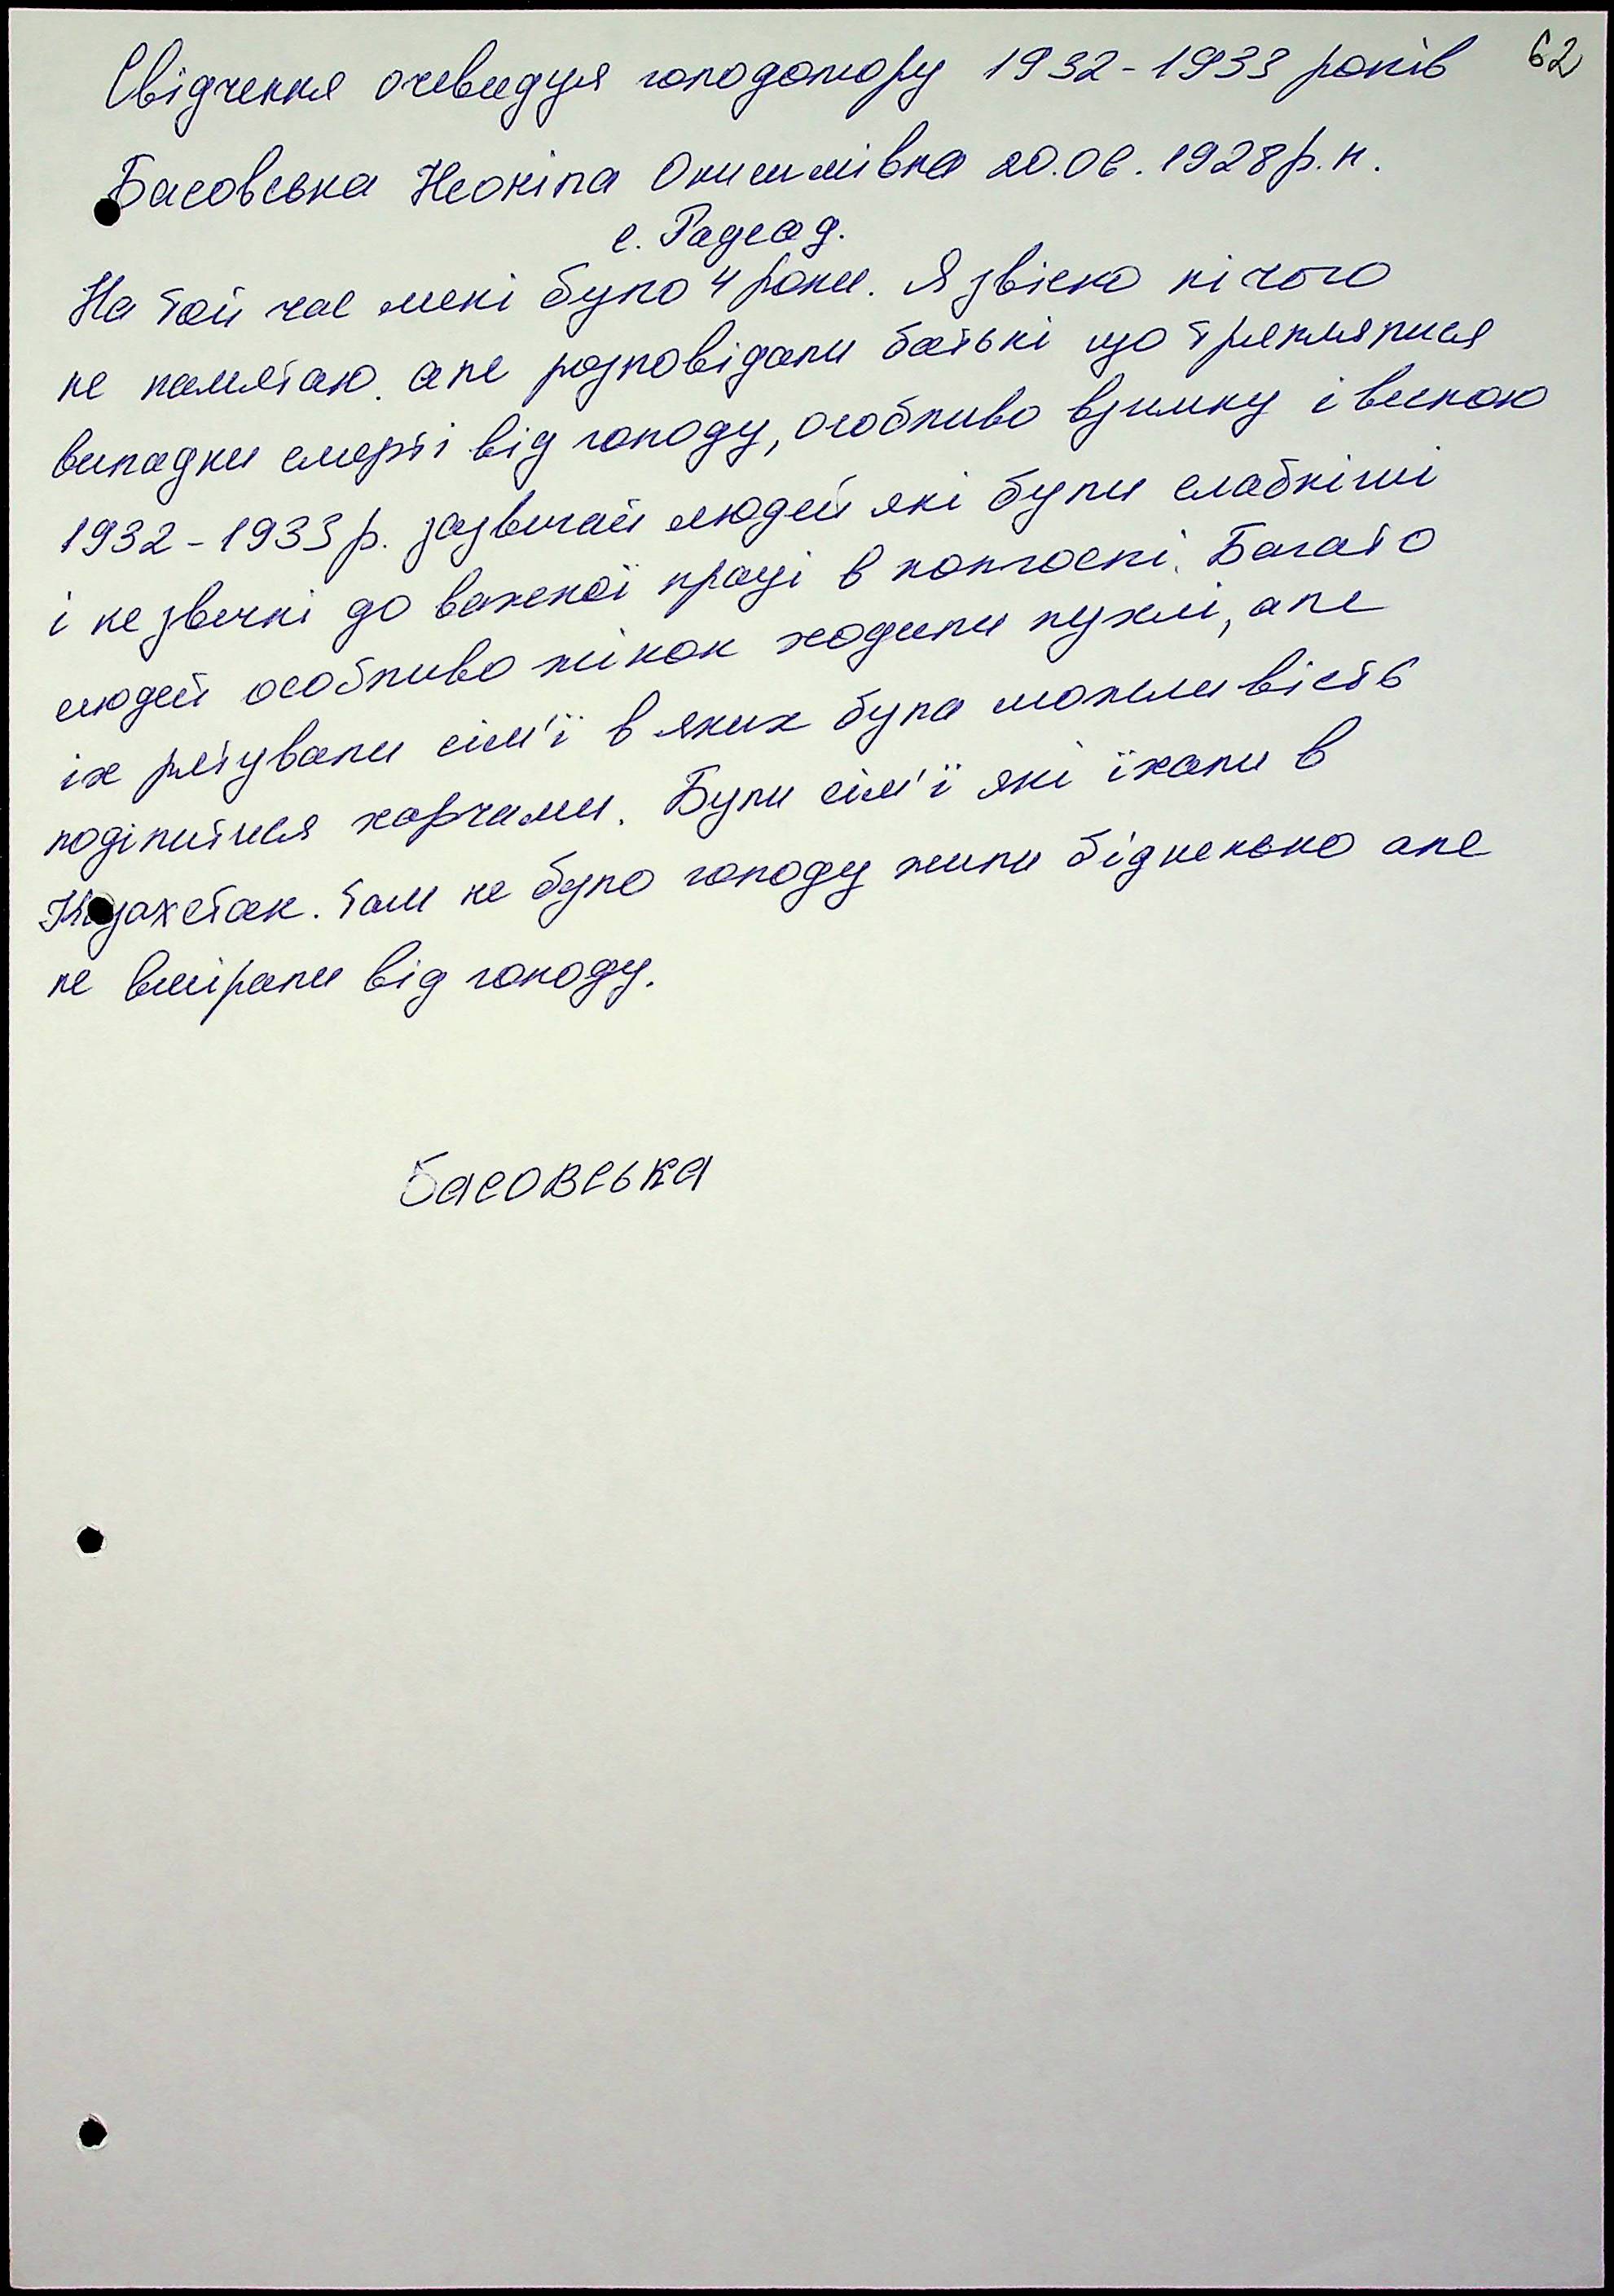 62
Свідчення очевидця голодомору 1932-1933 років
Басовська Неоніла Онисимівна 20.06.1928р.н.
с. Радсад.
На той час мені було 4 роки. Я звісно нічого
не памятаю. але розповідали батькі що траплялися
випадки смерті від голоду, особливо взимку і весною
1932-1933р. зазвичай людей які були слабкіші
і не звичні до важкої праці в колгоспі. Багато
людей особливо жінок ходили пухлі, але
їх рятували сім'ї в яких була можливість
поділитися харчами. Були сім'ї які їхали в
Казахстан. там не було голоду жили бідненько але
не вмірали від голоду.
Басовська